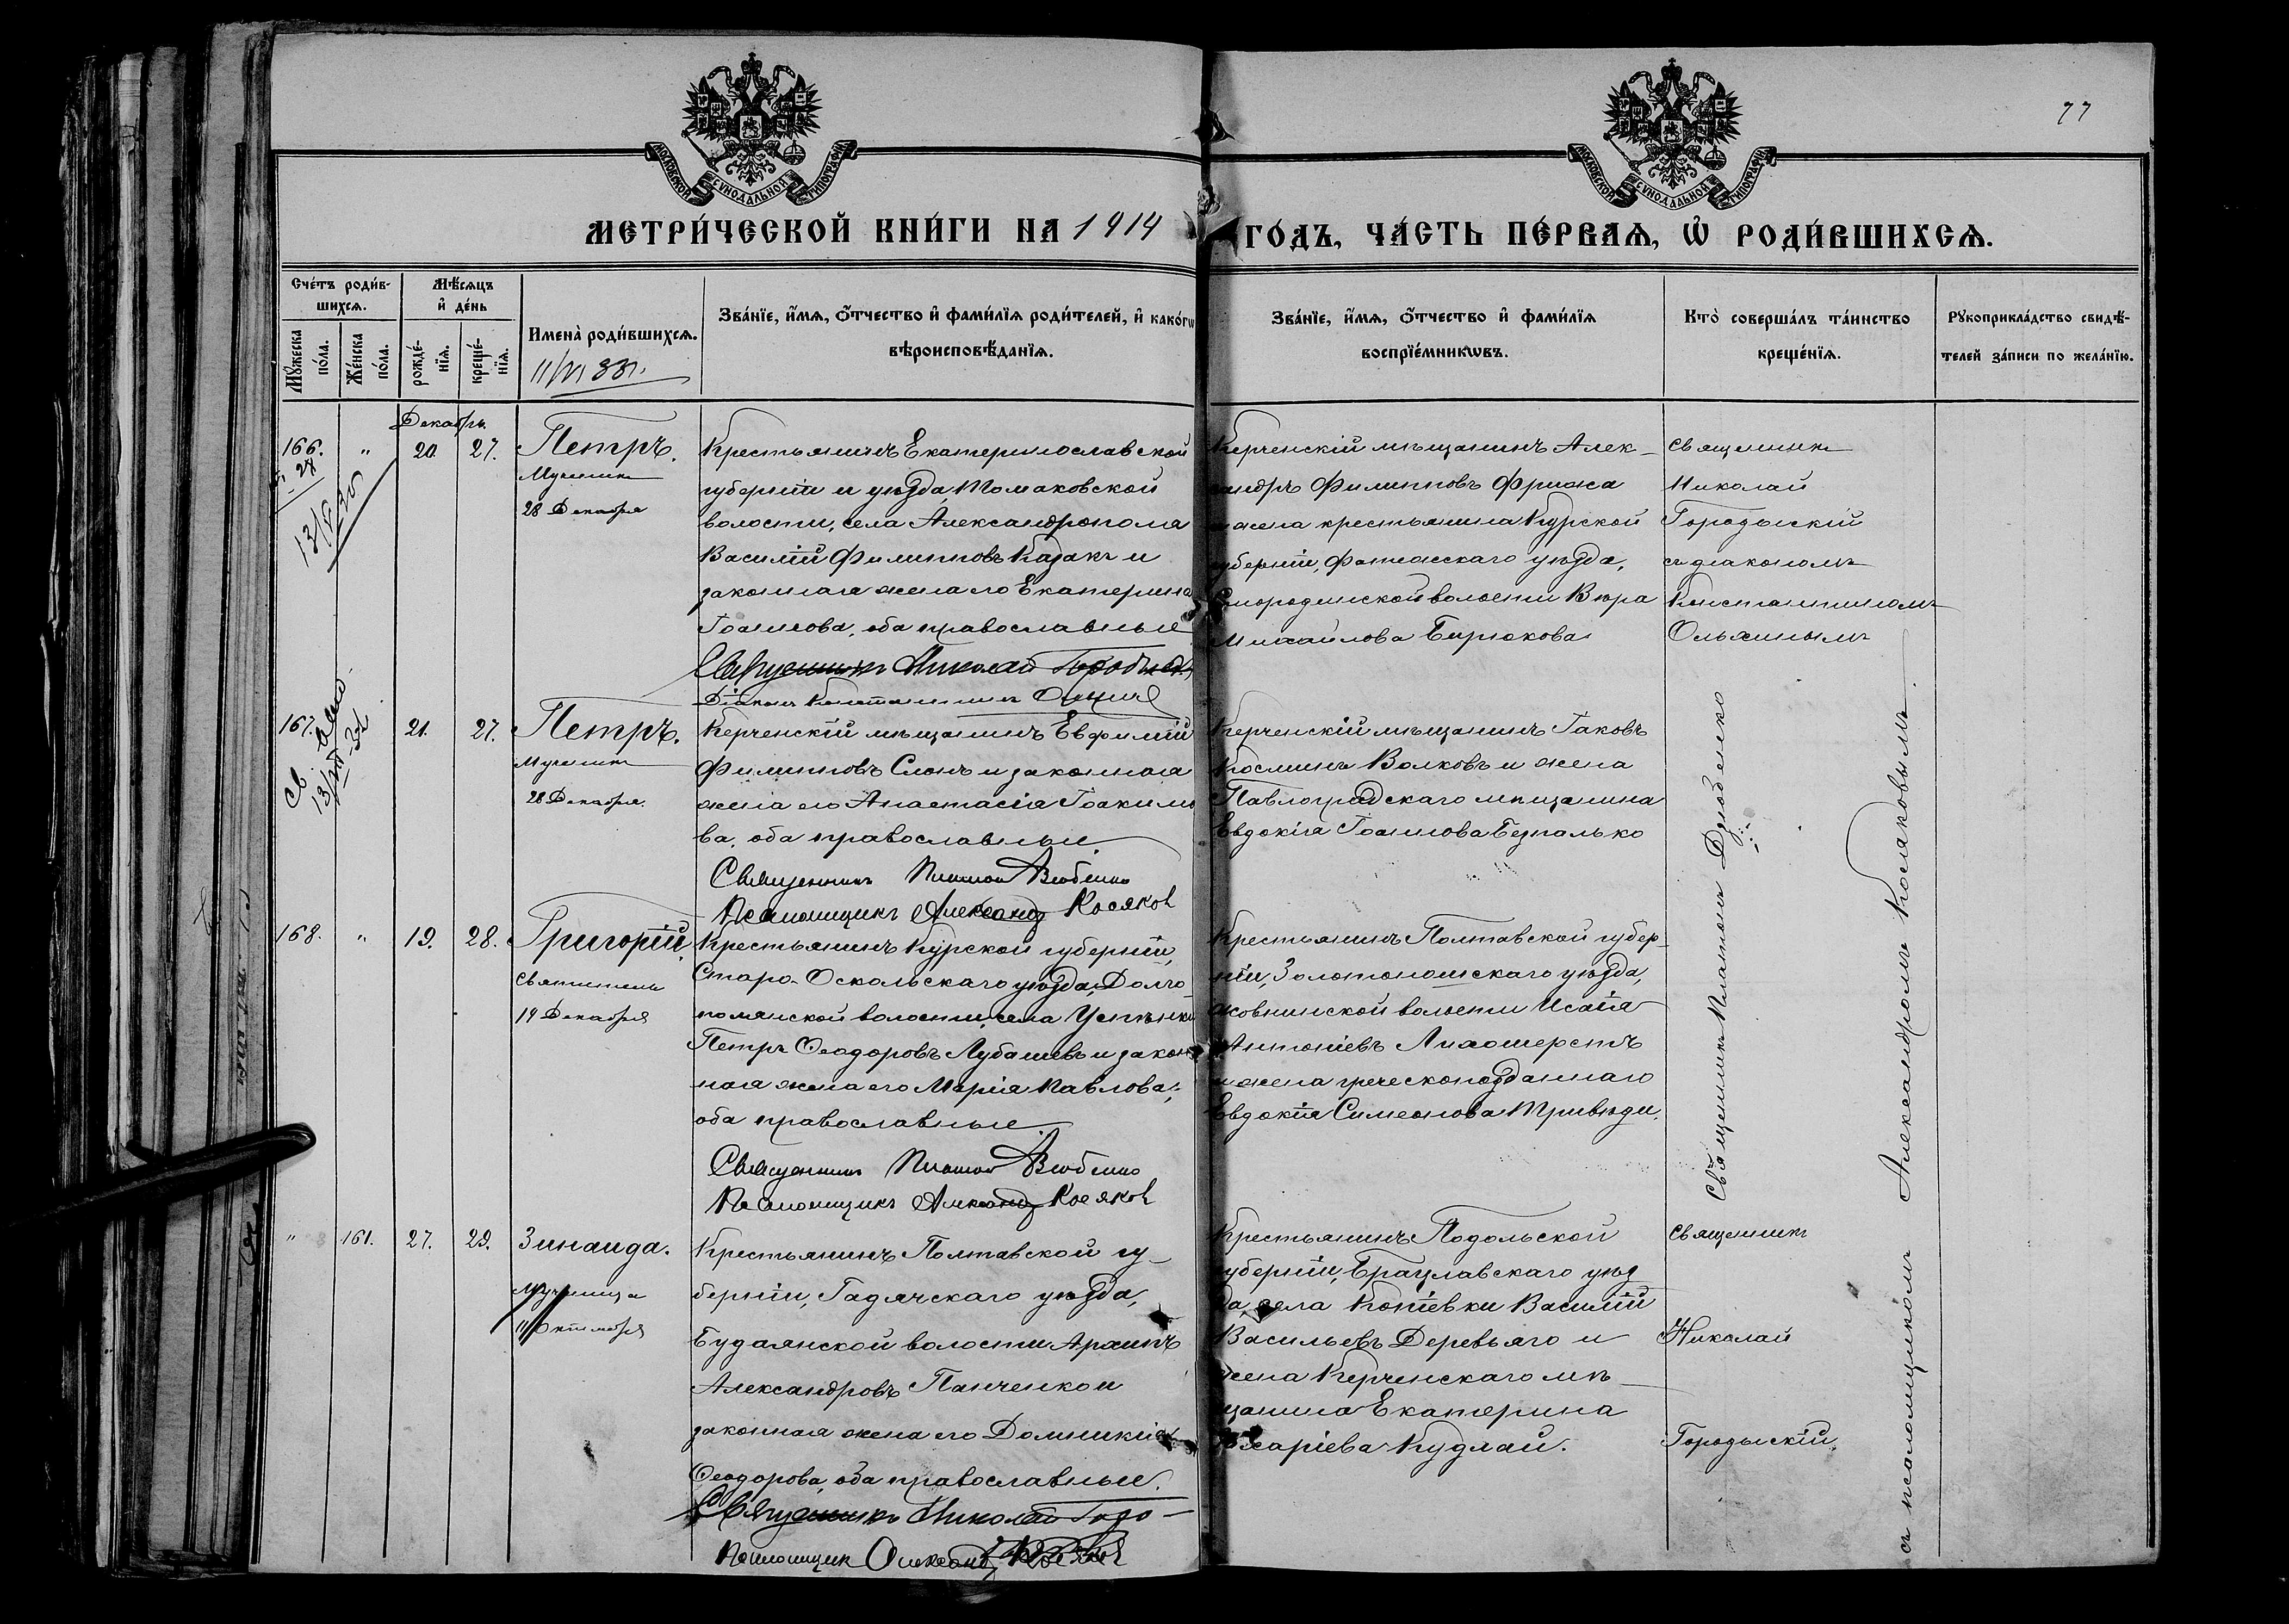 77
МОСКОВСКОЙ СѴНОДАЛЬНОЙ ТИПОГРАФІИ
МОСКОВСКОЙ СѴНОДАЛЬНОЙ ТИПОГРАФІИ
МЕТРИ́ЧЕСКОЙ КНИ́ГИ НА 1914 ГО́ДЪ, ЧА́СТЬ ПЕ́РВАѦ, Ѡ РОДИ́ВШИХСѦ.
Сче́тъ роди́в-
шихсѧ.
Мꙋжеска по́ла.
Же́нска по́ла.
Мѣ́сѧцъ
и҆ де́нь
рожде́-
нїѧ.
креще́-
нїѧ.
Имена̀ роди́вшихсѧ.
Зва́нїе, и҆́мѧ, ѻ҆́тчество и҆ фами́лїѧ роди́телей, и҆ како́гѡ
вѣроисповѣ́данїѧ.
Зва́нїе, и҆́мѧ, ѻ҆́тчество и҆ фами́лїѧ
воспрїе́мникѡвъ.
Кто̀ соверша́лъ та́инство
креще́нїѧ.
Рꙋкоприкла́дство свидѣ́-
телей за́писи по жела́нїю.
Декабрь
166. " 20. 27.
Петръ.
Мученикъ
28 Декабря
Крестьянинъ Екатеринославской
губерніи и уѣзда, Томаковской
волости, села Александрополя
Василій Филипповъ Казакъ и
законная жена его Екатерина
Іоаннова, оба православные
Священникъ Николай
Діаконъ Константинъ
Керченскій мѣщанинъ Алек-
сандръ Филипповъ
и жена крестьянина Курской
губерніи, Фатежскаго уѣзда,
Смородинской волости Вѣра
Михайлова Бирюкова
Священникъ
Николай
Городыскій
съ діакономъ
Константиномъ
167. 21. 27.
Петръ.
Мученикъ
28 Декабря.
Керченскій мѣщанинъ Евфимій
Филипповъ Слонъ и законная
жена его Анастасія Іоакимо
ва, оба православные.
Священникъ Платонъ Дзюбенко
Псаломщикъ Александръ Косяков
Керченскій мѣщанинъ Іаковъ
Космынъ Волковъ и жена
Павлоградскаго мѣщанина
Евдокія Іоаннова Безпалько
Священникъ Платонъ Дзюбенко
съ псаломщикомъ Александромъ Косяковымъ.
168. " 19. 28.
Григорій.
Святитель
19 Декабря
Крестьянинъ Курской губерніи,
Старо-Оскольскаго уѣзда, Долго-
полянской волости, села
Петръ Ѳеодоровъ Лубашевъ и закон
ная жена его Марія Павлова,
оба православные.
Священникъ Платон Дзюбенко
Псаломщикъ Александръ Косяков
Крестьянинъ Полтавской губер-
ніи, Золотоношскаго уѣзда,
волости Исаія
Антоніевъ Лихошерстъ
и жена греческоподданнаго
Евдокія Симеонова
" 161. 27. 29.
Зинаида.
Мученица
11 Октября
Крестьянинъ Полтавской гу-
берніи, Гадячскаго уѣзда,
волости Архипъ
Александровъ Панченко и
законная жена его Домникія
Ѳеодорова, оба православные.
Священникъ Николай Горо-
Псаломщикъ Александръ Косяков
Крестьянинъ Подольской
губерніи, Брацлавскаго уѣз
да, села Копіевки Василій
Васильевъ и
жена Керченскаго мѣ-
щанина Екатерина
Захаріева Кудлай.
Священникъ
Николай
Городыскій.